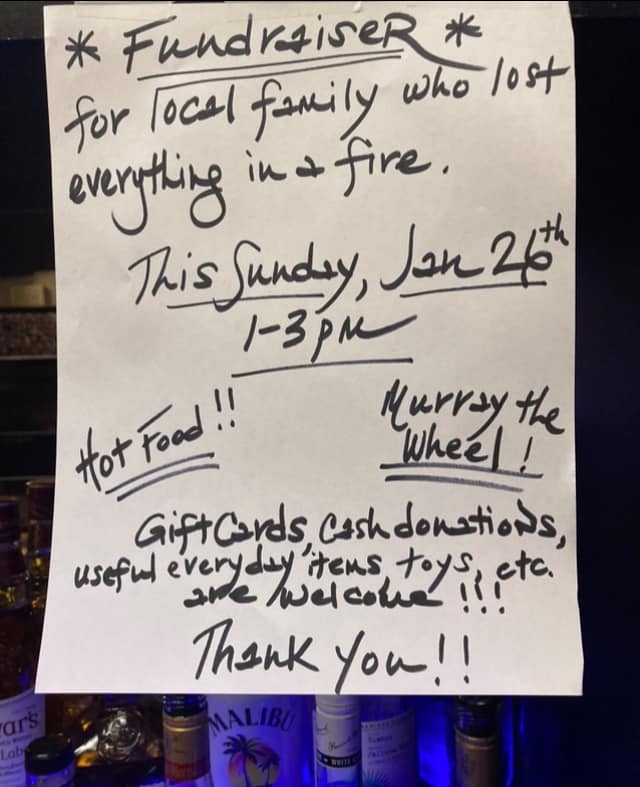 * FundraiseR *
for local family who lost
everything in a fire.
This Sunday, Jan 26th
1-3 PM
Hot Food!!
Murray the
Wheel!
Gift Cards, Cash donations,
useful everyday items, toys, etc.
are welcome!!!
Thank You!!
MALIBU
WHITE